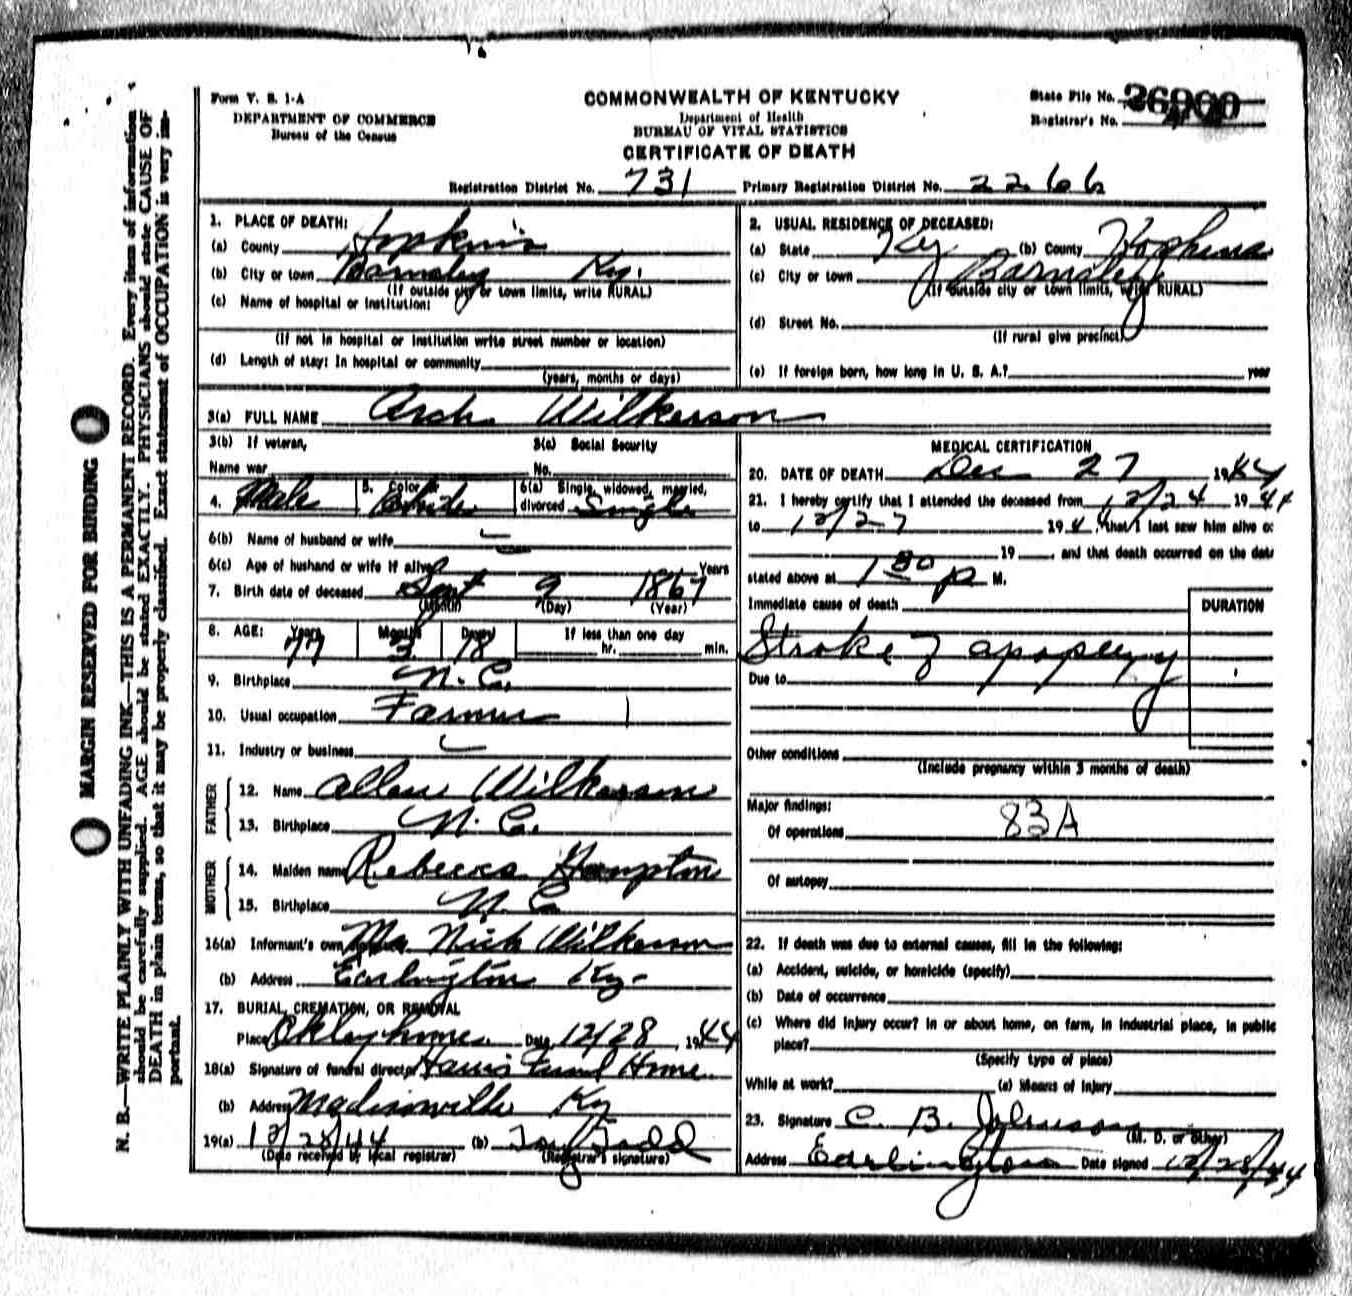 Form V. S. 1-A
DEPARTMENT OF COMMERCE
Bureau of the Census
COMMONWEALTH OF KENTUCKY
Department of Health
BUREAU OF VITAL STATISTICS
CERTIFICATE OF DEATH
State File No.
Registrar's No.
Registration District No. 731 Primary Registration District No. 2266
1. PLACE OF DEATH:
(a) County Hopkins
(b) City or town Barnsley Ky.
(If outside city or town limits, write RURAL)
(c) Name of hospital or institution:
(If not in hospital or institution write street number or location)
(d) Length of stay: In hospital or community
(years, months or days)
2. USUAL RESIDENCE OF DECEASED:
(a) State Ky (b) County Hopkins
(c) City or town Barnsley
(If outside city or town limits, write RURAL)
(d) Street No.
(If rural give precinct)
(e) If foreign born, how long in U. S. A.? year
3(a) FULL NAME Arch Wilkerson
3(b) If veteran, 3(c) Social Security
Name war No.
4. Male 5. Color or White 6(a) Single, widowed, married, divorced Single
6(b) Name of husband or wife
6(c) Age of husband or wife if alive Years
7. Birth date of deceased Sept 9 1867
(Month) (Day) (Year)
8. AGE: Years 77 Months 3 Days 18 If less than one day hr. min.
9. Birthplace N. C.
10. Usual occupation Farmer
11. Industry or business
FATHER
12. Name Allen Wilkerson
13. Birthplace N. C.
MOTHER
14. Maiden name Rebecca Hampton
15. Birthplace N. C.
16(a) Informant's own Mr. Nick Wilkerson
(b) Address Earlington Ky-
17. BURIAL, CREMATION, OR REMOVAL
Place Date 12/28, 1944
18(a) Signature of funeral director Harris Funeral Home
(b) Address Madisonville Ky
19(a) 12/28/44 (b) Todd
(Date received by local registrar) (Registrar's signature)
MEDICAL CERTIFICATION
20. DATE OF DEATH Dec 27 1944
21. I hereby certify that I attended the deceased from 12/24 1944
to 12/27 194 , that I last saw him alive on
19 , and that death occurred on the date
stated above at 1 30 P M.
Immediate cause of death DURATION
Stroke of apoplexy
Due to
Other conditions
(Include pregnancy within 3 months of death)
Major findings:
Of operations 83A
Of autopsy
22. If death was due to external causes, fill in the following:
(a) Accident, suicide, or homicide (specify)
(b) Date of occurrence
(c) Where did injury occur? In or about home, on farm, in industrial place, in public
place?
(Specify type of place)
While at work? (e) Means of injury
23. Signature C. B. Johnson
(M. D. or other)
Address Earlington Date signed 12/28/44
MARGIN RESERVED FOR BINDING
N. B.—WRITE PLAINLY WITH UNFADING INK—THIS IS A PERMANENT RECORD. Every item of information
should be carefully supplied. AGE should be stated EXACTLY. PHYSICIANS should state CAUSE OF
DEATH in plain terms, so that it may be properly classified. Exact statement of OCCUPATION is very im-
portant.